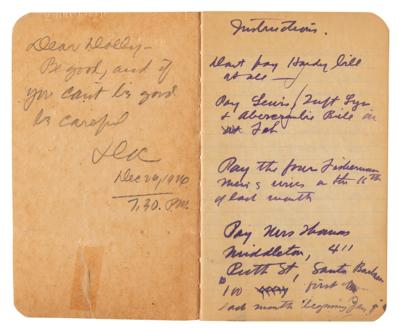 Dear Dolly –
Be good, and if
you can't be good
be careful
Dec 29, 1926
7.30. P.M.
Instructions.
Dont pay Handy bill
at all —
Pay Lewis /
& Abercrombie Bill in
Feb
Pay the four Fisherman
on the 15th
of each month
Pay Mrs Thomas
Middleton, 411
St, Santa Barbara
100 first
each month beginning Jan